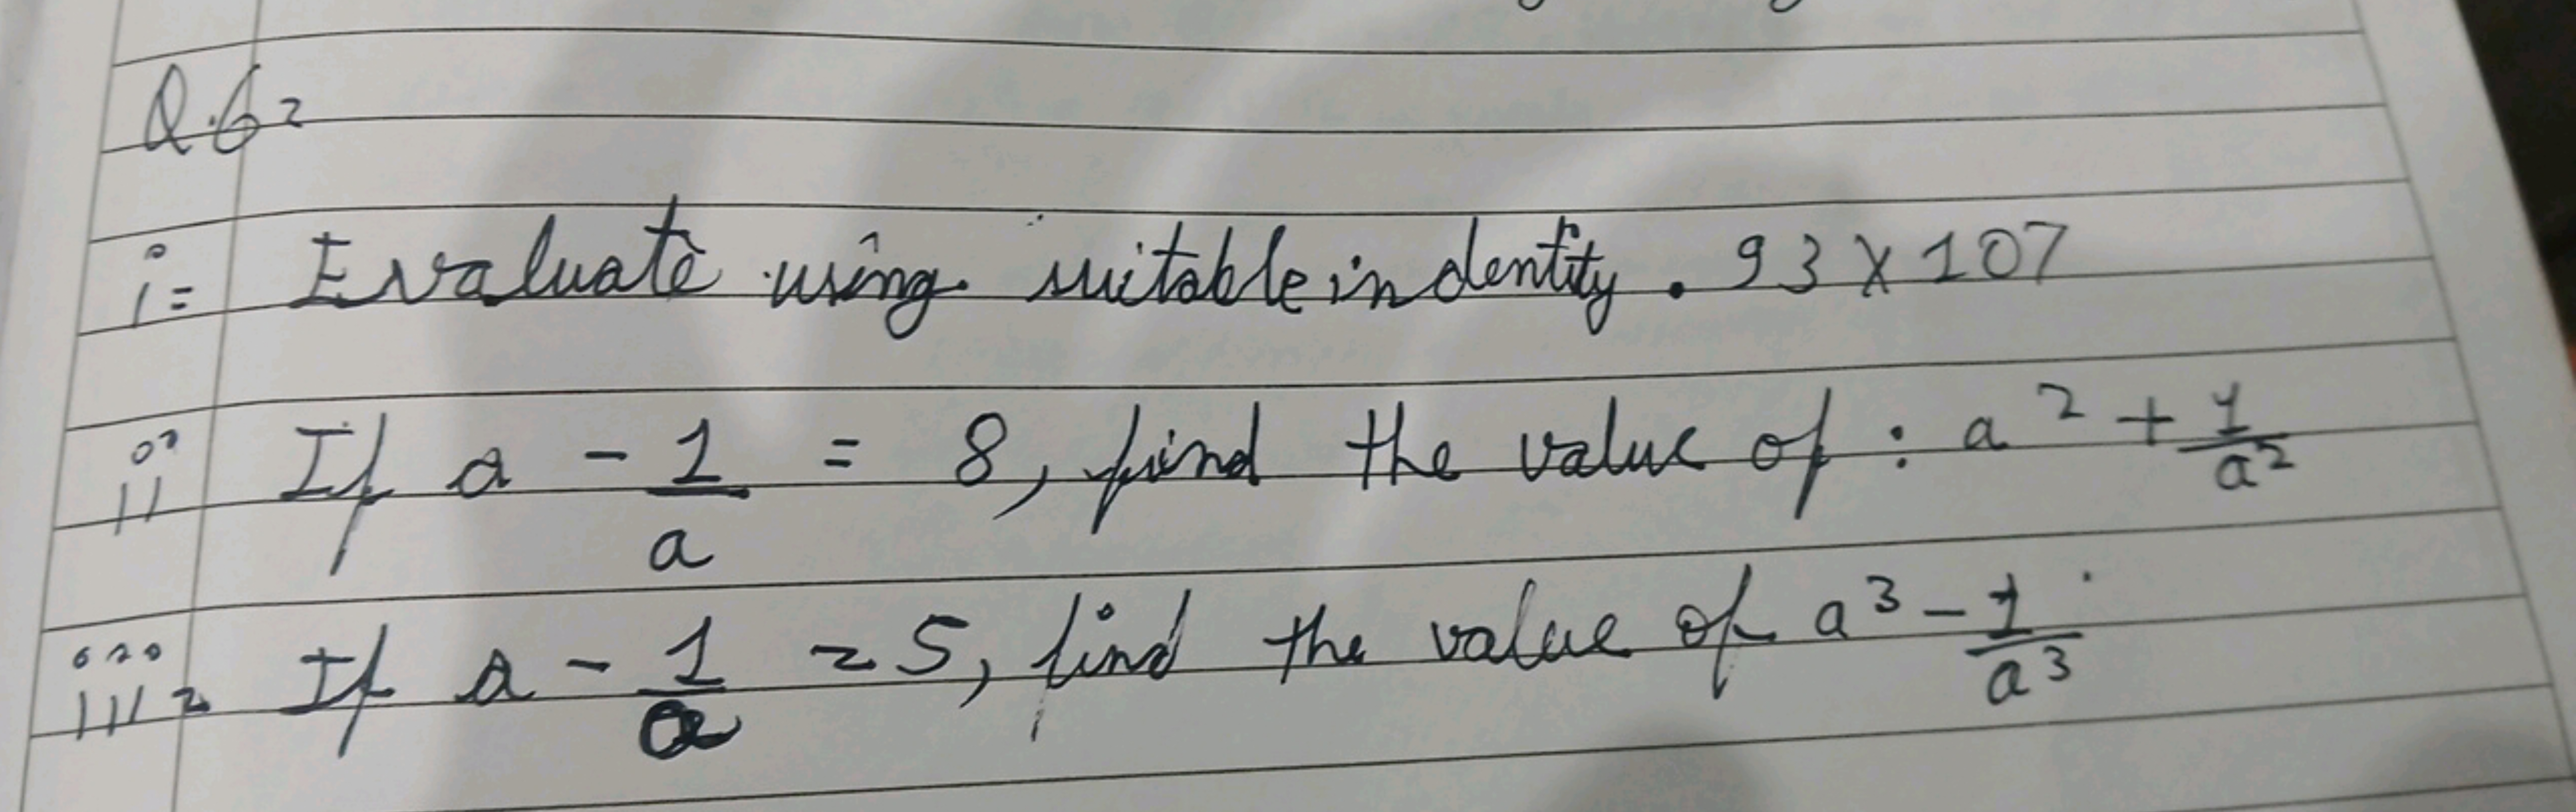 Q.6=
i= Evaluate using suitable indentity. 93 X 107
ii If a - 1/a = 8, find the value of : a² + 1/a²
iii= If a - 1/a = 5, find the value of a³ - 1/a³